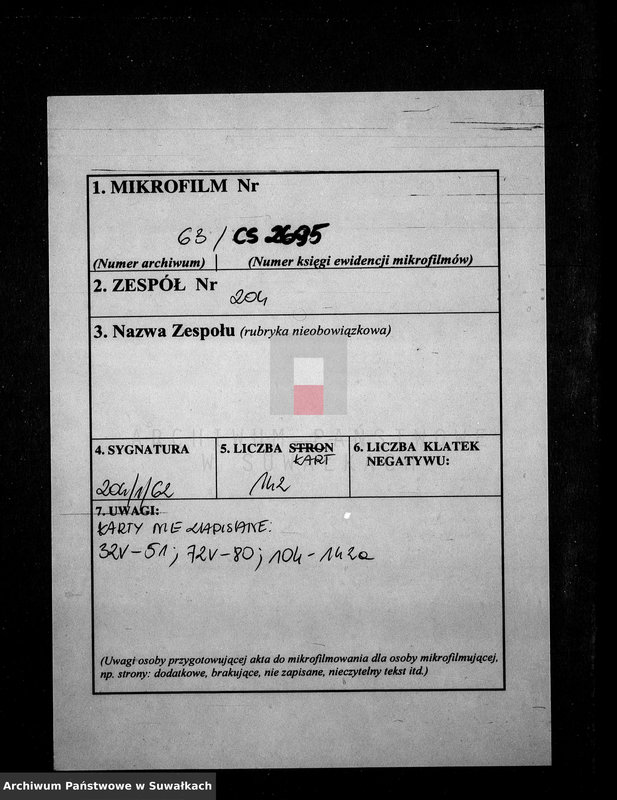 1. MIKROFILM Nr
63 / CS 2695
(Numer archiwum) (Numer księgi ewidencji mikrofilmów)
2. ZESPÓŁ Nr
204
3. Nazwa Zespołu (rubryka nieobowiązkowa)
ARCHIWUM PAŃSTWOWE
W SUWAŁKACH
4. SYGNATURA
204/1/62
5. LICZBA STRON
KART
142
6. LICZBA KLATEK
NEGATYWU:
7. UWAGI:
KARTY NIE ZAPISANE:
32V-51; 72V-80; 104-142a
(Uwagi osoby przygotowującej akta do mikrofilmowania dla osoby mikrofilmującej,
np. strony: dodatkowe, brakujące, nie zapisane, nieczytelny tekst itd.)
Archiwum Państwowe w Suwałkach